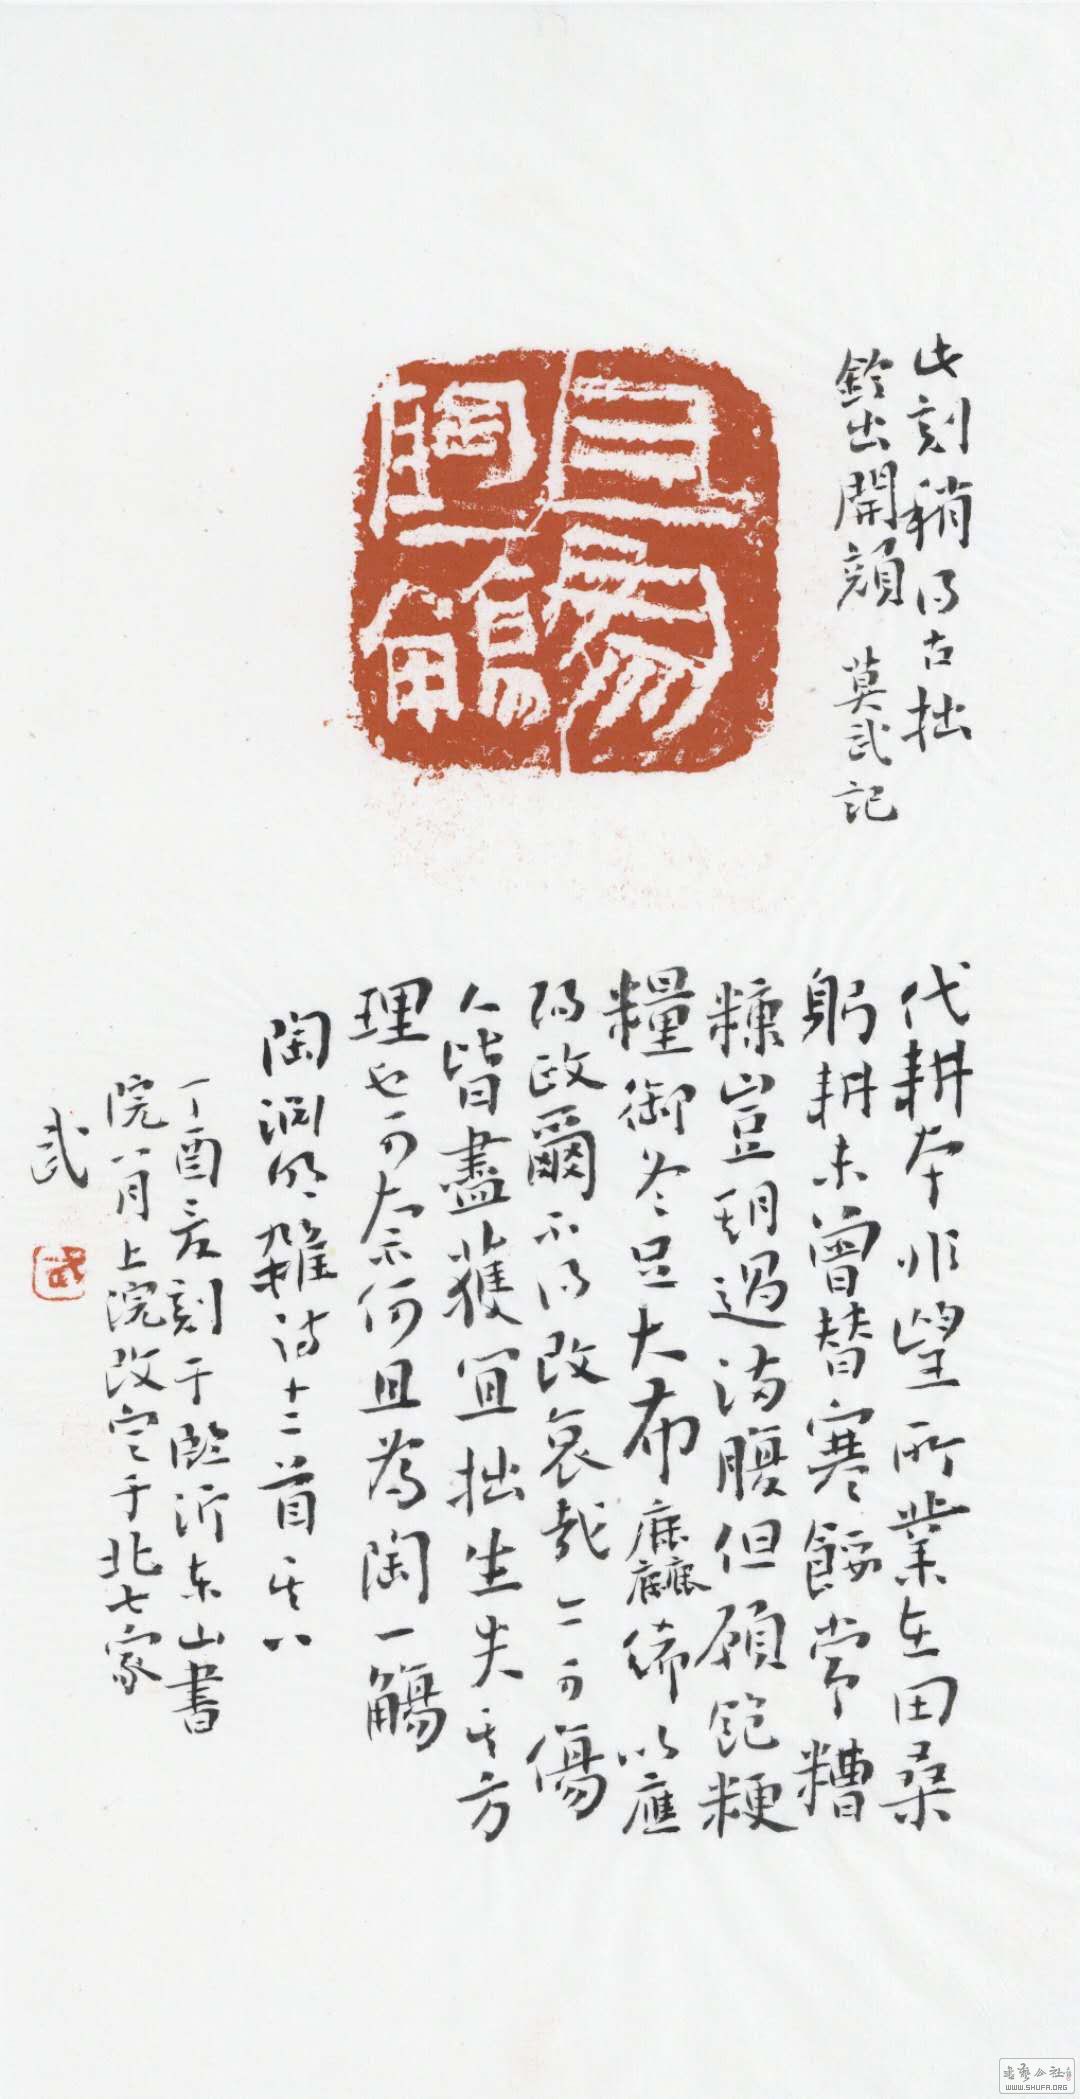 此刻稍得古拙
鈐出開顏 莫武記
且為陶一觴
代耕本非望所業在田桑
躬耕未曾替寒餒常糟
糠豈期過滿腹但願飽粳
糧御冬足大布麤絺以應
陽政爾不得改哀哉亦可傷
人皆盡獲宜拙生失其方
理也可奈何且為陶一觴
陶淵明雜詩十二首其八
丁酉夏刻于臨沂東山書
院八月上浣改定于北七家
武
武
WWW.SHUFA.ORG